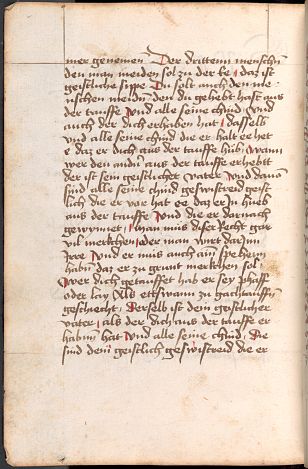 mer genemen Der dritten menschn
den man meiden sol zu der Ee / daz ist
geistliche sippe Du solt auch den me
nschen meiden den du gehebt hast aus
der tauffe Vnd alle seine chind Vnd
auch der dich erhaben hat / dasselb
vnd alle seine chind die er halt ee het
e daz er dich aus der tauffe hub / wann
wer den andn aus der tauffe erhebtt
der ist sein geistlichet vater Vnd dauon
sind alle seine chind geswistreid geist
lich die er vor hat ee daz er in hueb
aus der tauffe Vnd die er darnach
gewynnet / man mus diser Recht gar
vil merkchen / oder man wirt darinn
Jrre Vnd er mus auch ain spehern
habn daz er zu grunt merkchen sol
Wer dich getauffet hab er sey phaff
oder lay Als ettswann zu gachtauffn
geschiecht / Derselb ist dein geistlicher
vater / als der dich aus der tauffe er
habnn hat Vnd alle seine chind / Die
sind dein geistlich geswistreid die er